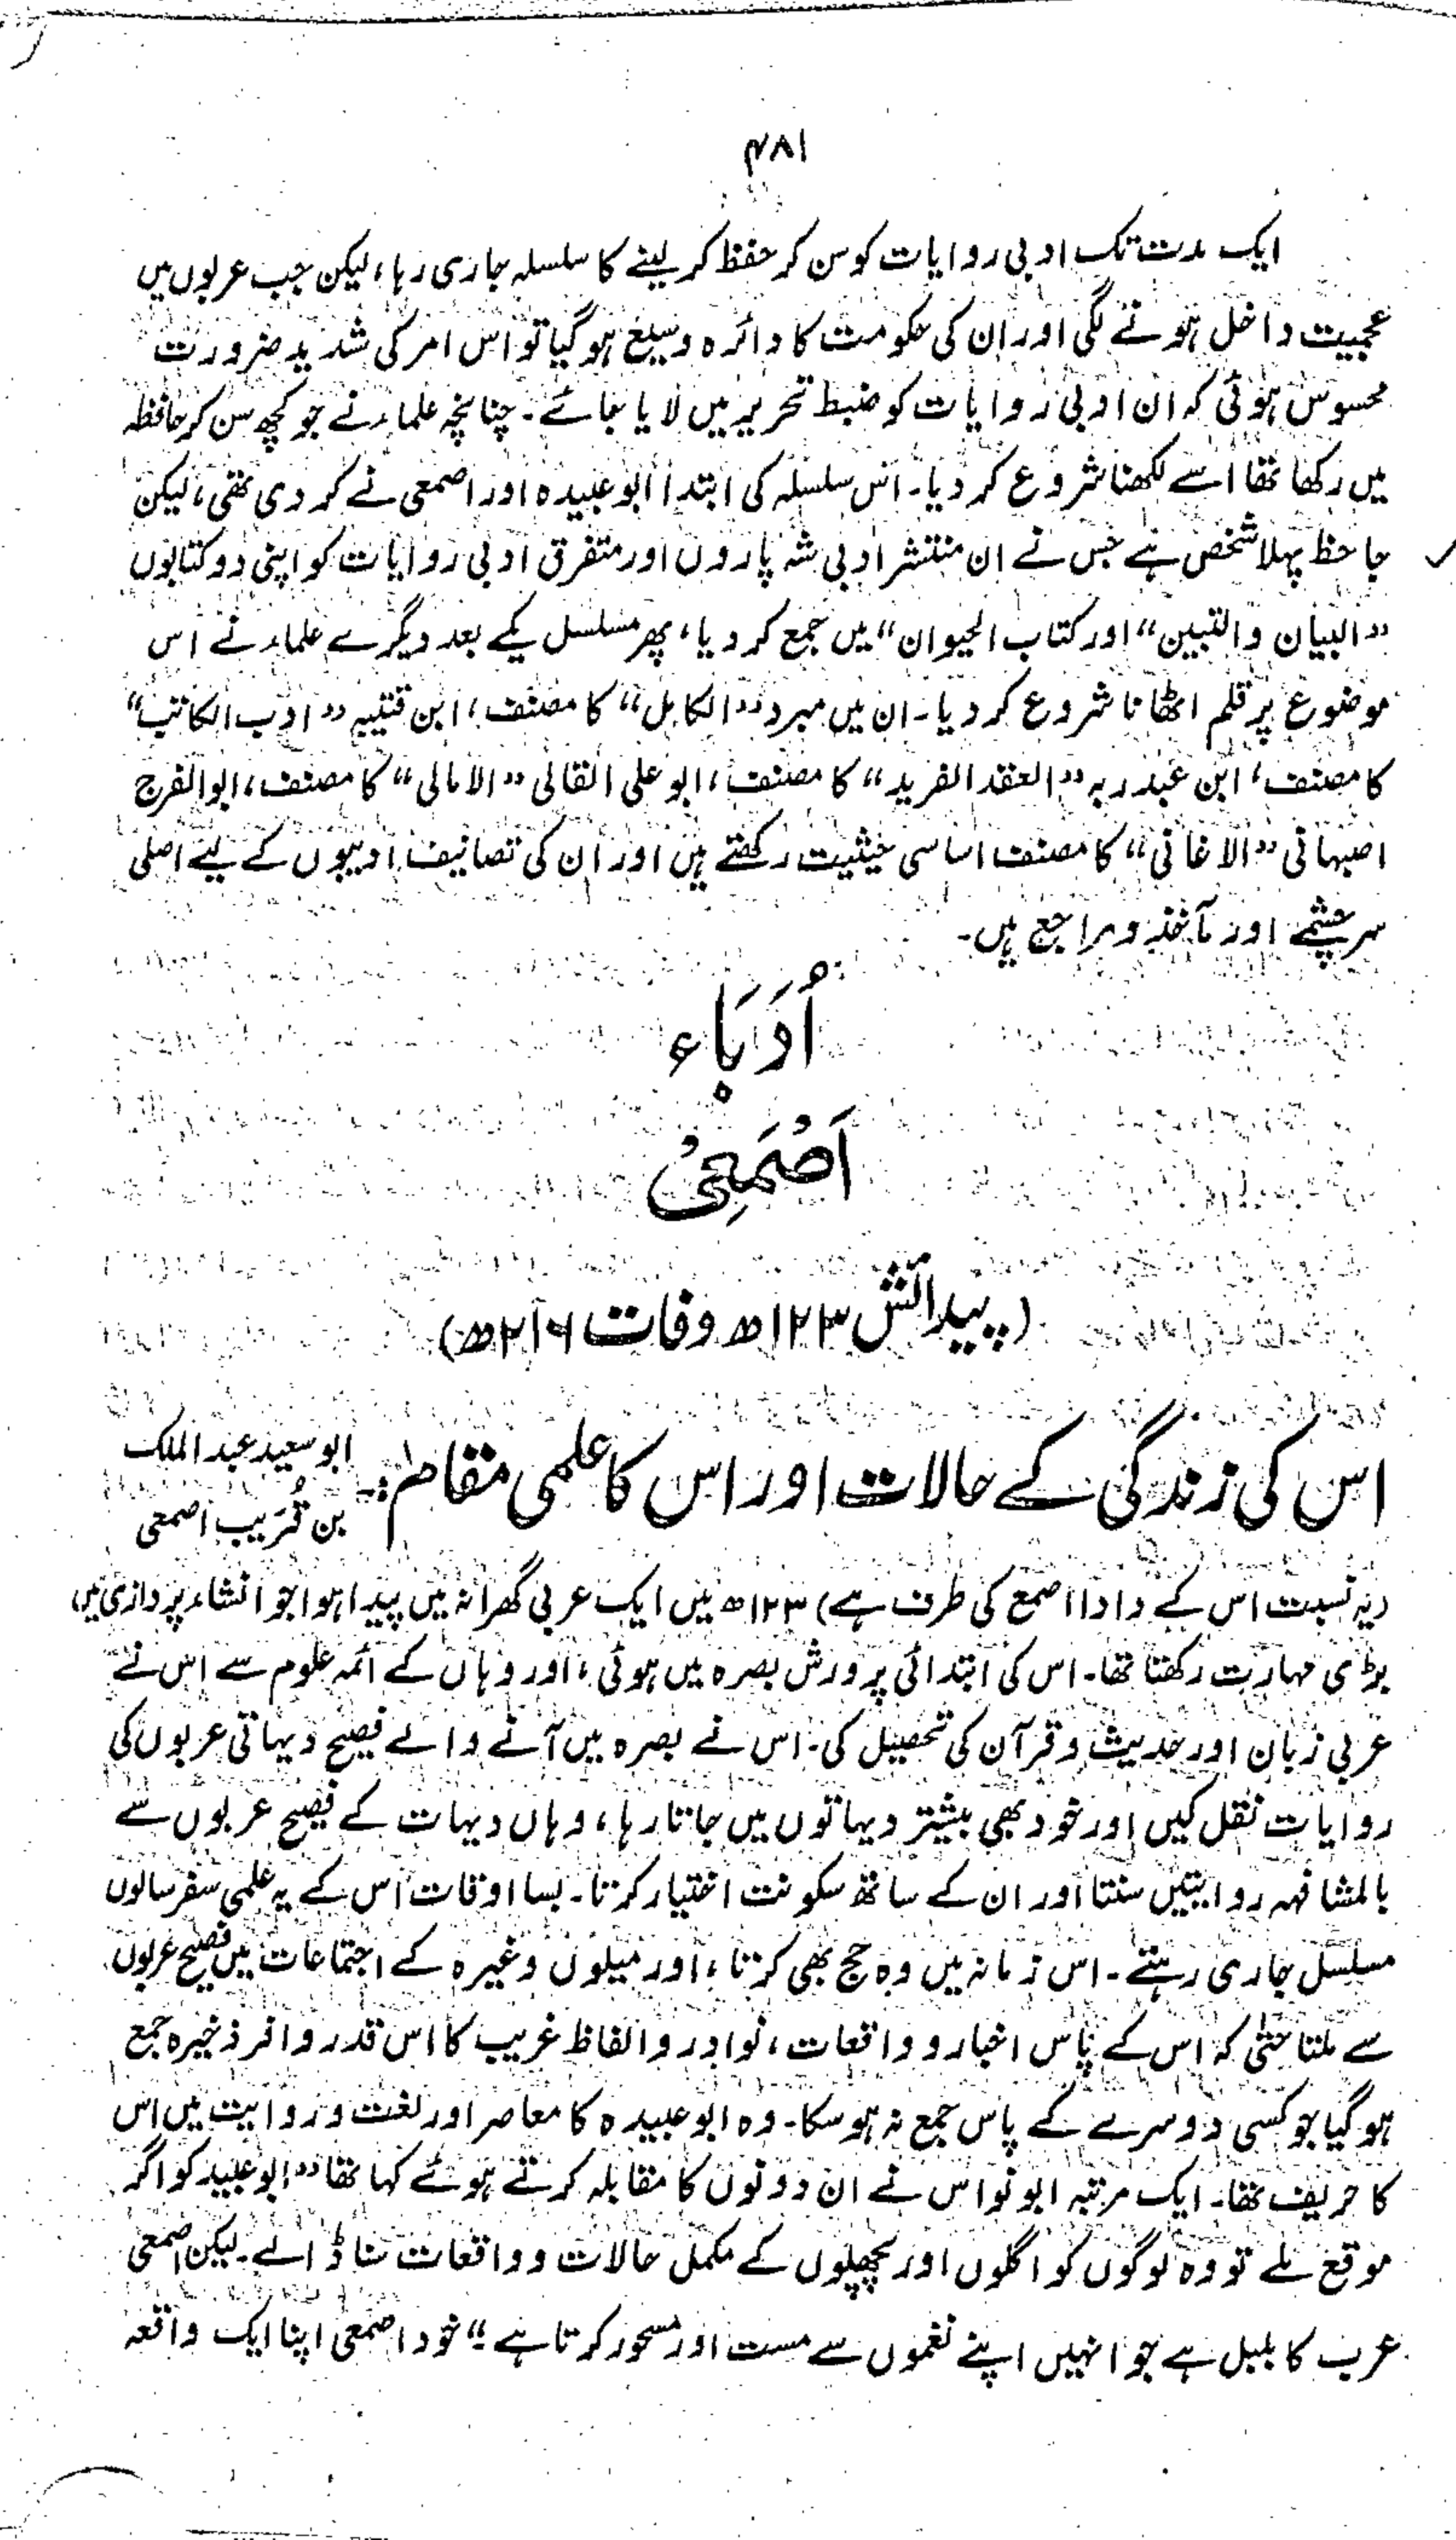 ۴۸۱
ایک مدت تک ادبی روایات کو سن کر حفظ کر لینے کا سلسلہ جاری رہا، لیکن جب عربوں میں
عجمیت داخل ہونے لگی اور ان کی حکومت کا دائرہ وسیع ہو گیا تو اس امر کی شدید ضرورت
محسوس ہوئی کہ ان ادبی روایات کو ضبط تحریر میں لایا جائے۔ چنانچہ علماء نے جو کچھ سن کر حافظہ
میں رکھا تھا اسے لکھنا شروع کر دیا۔ اس سلسلہ کی ابتدا ابو عبیدہ اور اصمعی نے کر دی تھی، لیکن
جاحظ پہلا شخص ہے جس نے ان منتشر ادبی شہ پاروں اور متفرق ادبی روایات کو اپنی دو کتابوں
”البیان والتبین“ اور کتاب الحیوان“ میں جمع کر دیا، پھر مسلسل یکے بعد دیگرے علماء نے اس
موضوع پر قلم اٹھانا شروع کر دیا۔ ان میں مبرد ”الکامل“ کا مصنف، ابن قتیبہ ”ادب الکاتب“
کا مصنف، ابن عبد ربہ ”العقد الفرید“ کا مصنف، ابو علی القالی ”الامالی“ کا مصنف، ابوالفرج
اصبہانی ”الاغانی“ کا مصنف اساسی حیثیت رکھتے ہیں اور ان کی تصانیف ادیبوں کے لیے اصلی
سرچشمے اور مآخذ و مراجع ہیں۔
اُدَبَاء
اَصْمَعِیْ
(پیدائش ۱۲۳ھ وفات ۲۱۶ھ)
اس کی زندگی کے حالات اور اس کا علمی مقام:۔ ابو سعید عبد الملک
بن قُرَیب اصمعی
(یہ نسبت اس کے دادا اصمع کی طرف ہے) ۱۲۳ھ میں ایک عربی گھرانہ میں پیدا ہوا جو انشاء پردازی میں
بڑی مہارت رکھتا تھا۔ اس کی ابتدائی پرورش بصرہ میں ہوئی، اور وہاں کے ائمہ علوم سے اس نے
عربی زبان اور حدیث و قرآن کی تحصیل کی۔ اس نے بصرہ میں آنے والے فصیح دیہاتی عربوں کی
روایات نقل کیں اور خود بھی بیشتر دیہاتوں میں جاتا رہا، وہاں دیہات کے فصیح عربوں سے
بالمشافہہ روایتیں سنتا اور ان کے ساتھ سکونت اختیار کرتا۔ بسا اوقات اس کے یہ علمی سفر سالوں
مسلسل جاری رہتے۔ اس زمانہ میں وہ حج بھی کرتا، اور میلوں وغیرہ کے اجتماعات میں فصیح عربوں
سے ملتا حتیٰ کہ اس کے پاس اخبار و واقعات، نوادر و الفاظ غریب کا اس قدر وافر ذخیرہ جمع
ہو گیا جو کسی دوسرے کے پاس جمع نہ ہو سکا۔ وہ ابو عبیدہ کا معاصر اور لغت و روایت میں اس
کا حریف تھا۔ ایک مرتبہ ابو نواس نے ان دونوں کا مقابلہ کرتے ہوئے کہا تھا ”ابو عبید کو اگر
موقع ملے تو وہ لوگوں کو اگلوں اور پچھلوں کے مکمل حالات و واقعات سنا ڈالے۔ لیکن اصمعی
عرب کا بلبل ہے جو انہیں اپنے نغموں سے مست اور مسحور کرتا ہے“ خود اصمعی اپنا ایک واقعہ